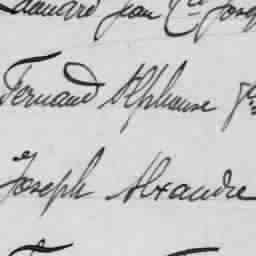 Edouard Jean
Fernand Alphonse
Joseph Alxandre